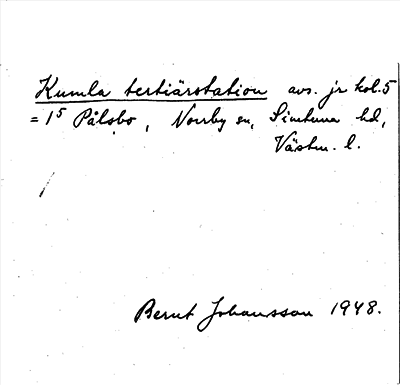 Kumla tertiärstation avs. jr kol. 5
= 1⁵ Pålsbo, Norrby sn, Simtuna hd,
Västm. l.
Bernt Johansson 1948.